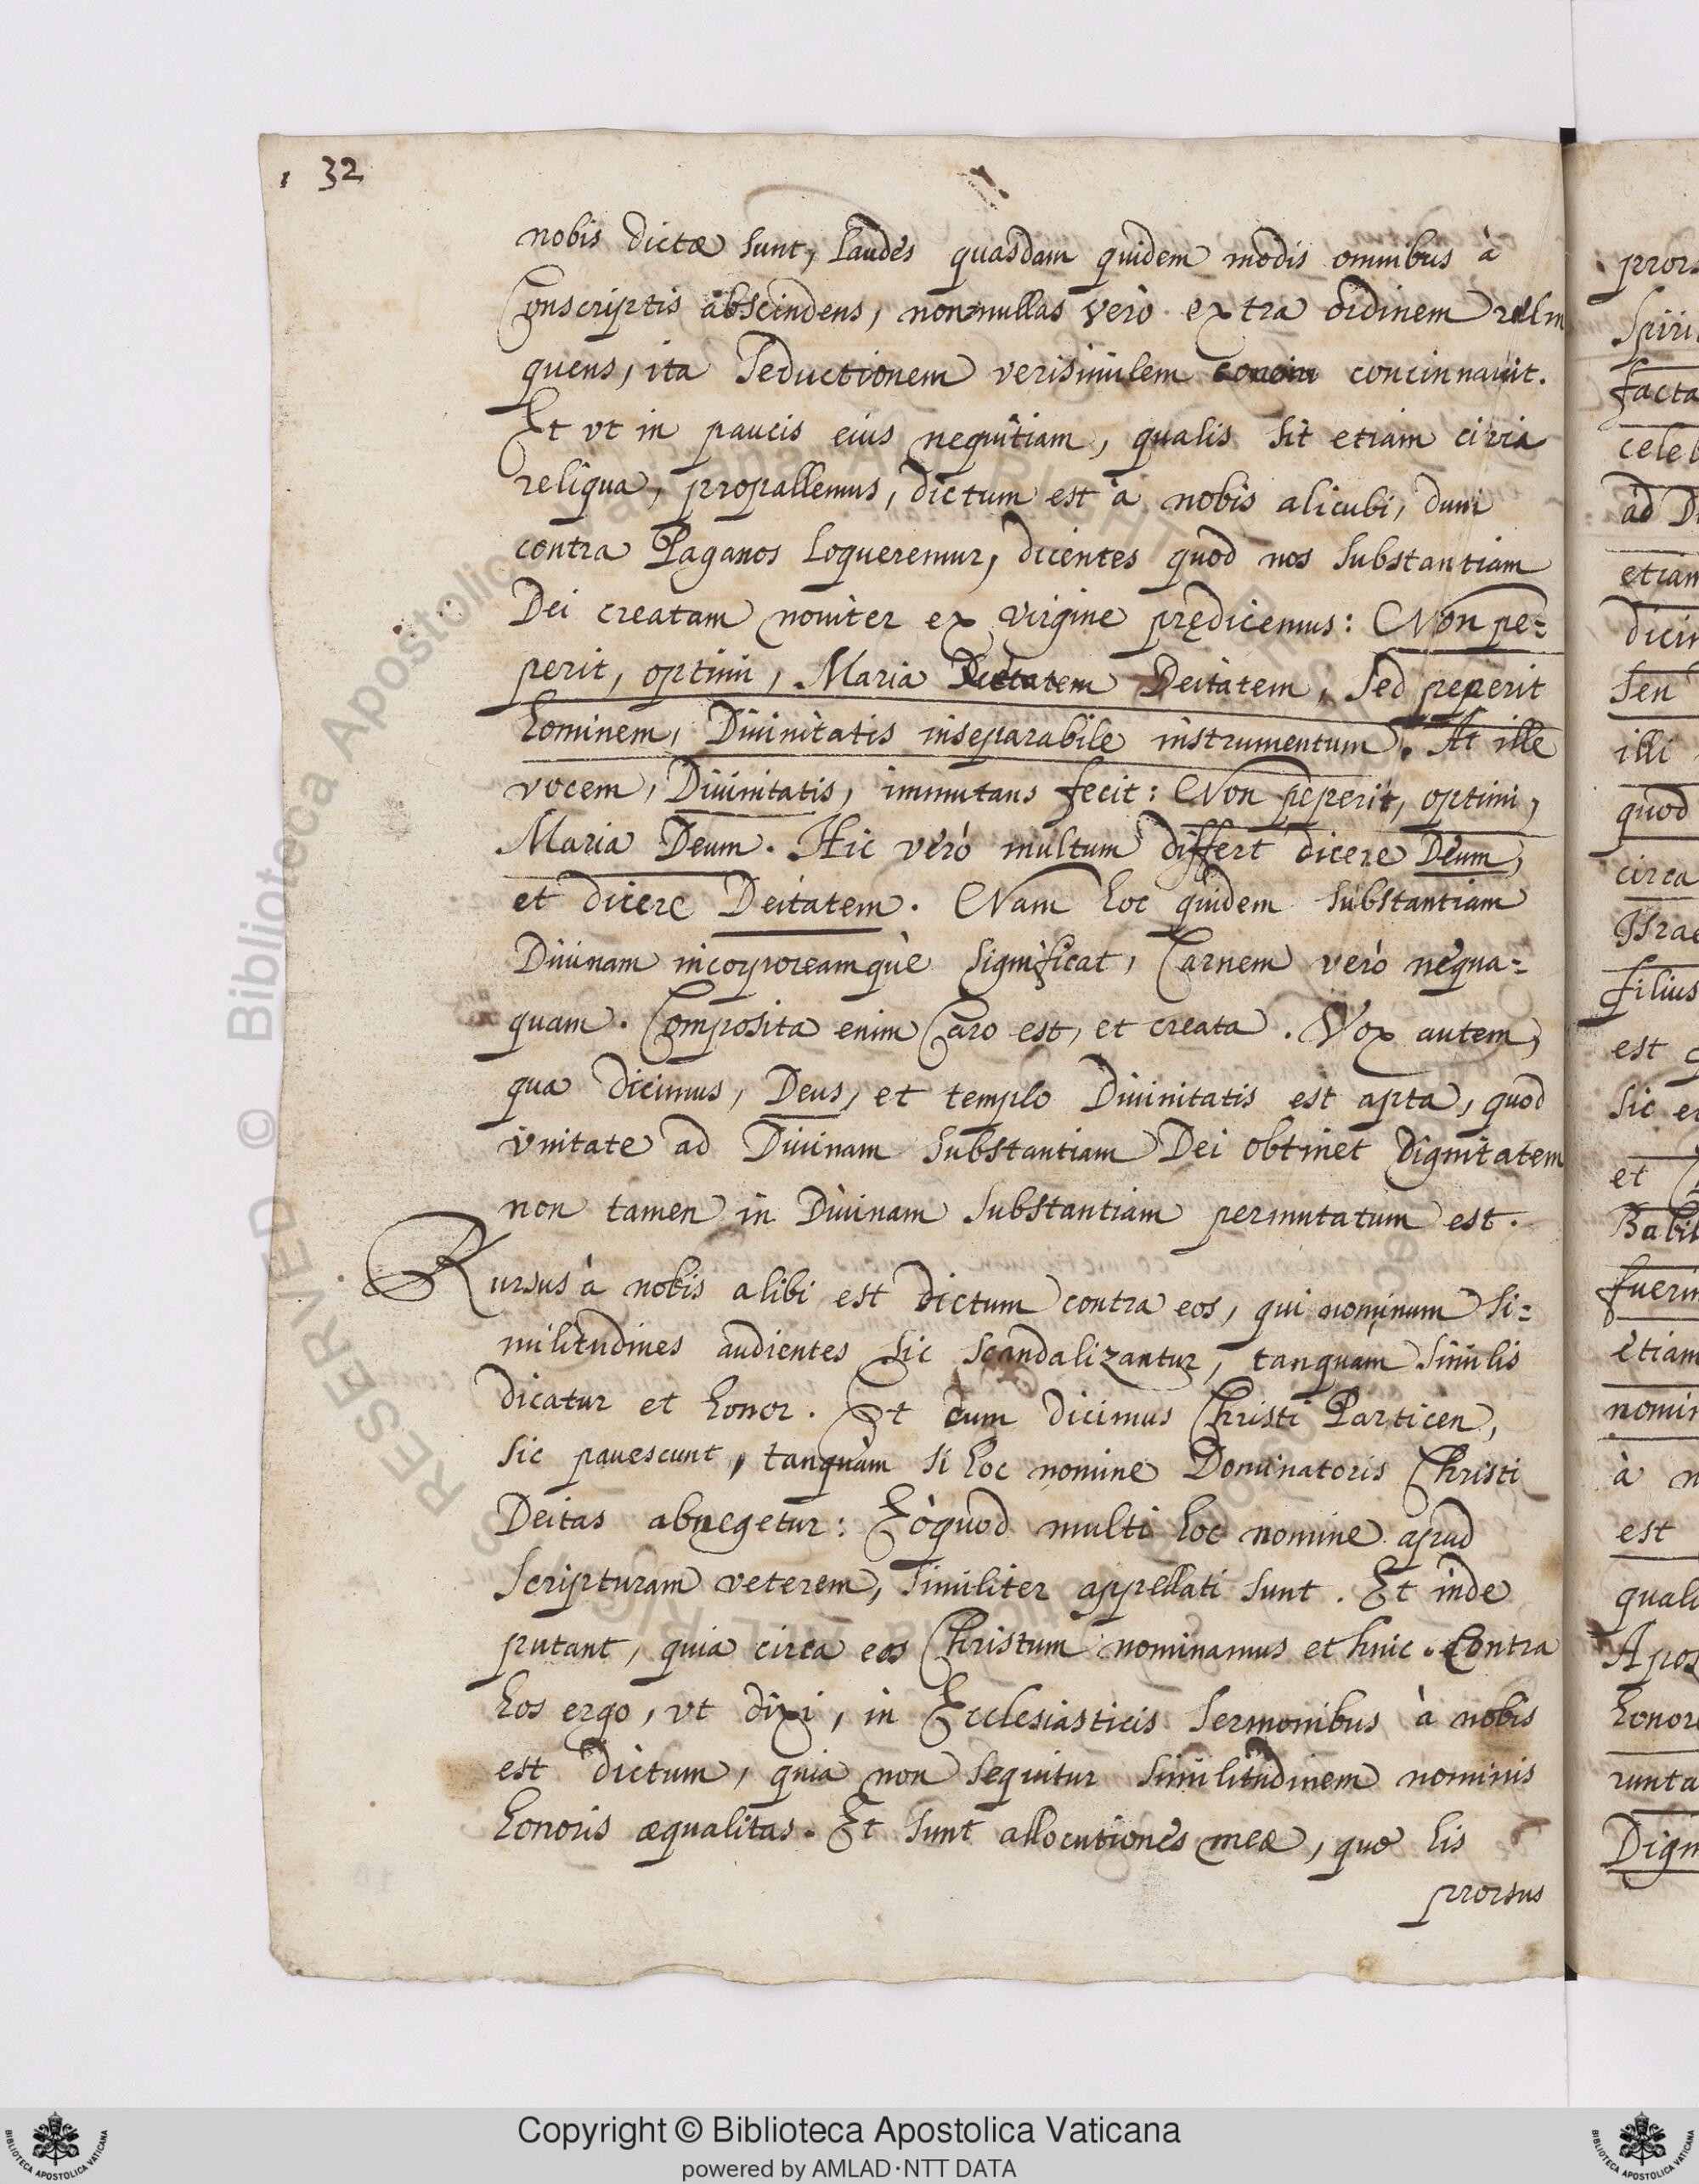 32
nobis dictæ sunt, laudes quasdam quidem modis omnibus à
Conscriptis abscindens, nonnullas verò extra ordinem relin
quens, ita seductionem verisimilem concin concinnauit.
Et vt in paucis eius nequitiam, qualis sit etiam circa
reliqua, propallemus, dictum est à nobis alicubi, dum
contra Paganos loqueremur, dicentes quod nos substantiam
Dei creatam nouiter ex Virgine prędicemus: Non pe=
perit, optimi, Maria Deitatem Deitatem, sed peperit
hominem, Diuinitatis inseparabile instrumentum. At ille
vocem, Diuinitatis, immutans fecit: Non peperit, optimi,
Maria Deum. Hic verò multum differt dicere Deum,
et dicere Deitatem. Nam hoc quidem substantiam
Diuinam incorpoream què significat, Carnem verò nequa=
quam. Composita enim Caro est, et creata. Vox autem,
qua dicimus, Deus, et templo Diuinitatis est apta, quod
vnitate ad Diuinam substantiam Dei obtinet dignitatem
non tamen in Diuinam substantiam permutatum est.
Rursus à nobis alibi est dictum contra eos, qui nominum si=
militudines audientes sic scandalizantur, tanquam similis
dicatur et honor. Et cum dicimus Christi Particen,
sic pauescunt, tanquàm si hoc nomine Dominatoris Christi
Deitas abnegetur: Eòquod multi hoc nomine apud
Scripturam veterem, similiter appellati sunt. Et inde
putant, quia circa eos Christum nominamus et hnic. Contra
hos ergo, vt dixi, in Ecclesiasticis sermonibus à nobis
est dictum, quia non sequitur similitudinem nominis
honoris æqualitas. Et sunt allocutiones meæ, quę his
prorsus
prors
Spiri
facta
celeb
ad D
etiam
dicin
sen
illi
quod
circa
Israe
filius
est q
sic e
et
Babil
fuerin
etiam
nomin
à n
est
quali
Apos
honor
runta
Dign
© Biblioteca Apostolica Vaticana
Copyright © Biblioteca Apostolica Vaticana
powered by AMLAD·NTT DATA